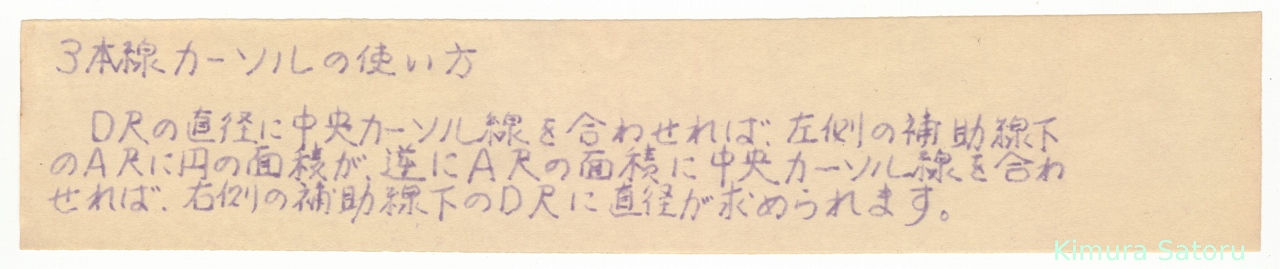 3本線カーソルの使い方
D尺の直径に中央カーソル線を合わせれば、左側の補助線下
のA尺に円の面積が、逆にA尺の面積に中央カーソル線を合わ
せれば、右側の補助線下のD尺に直径が求められます。
Kimura Satoru